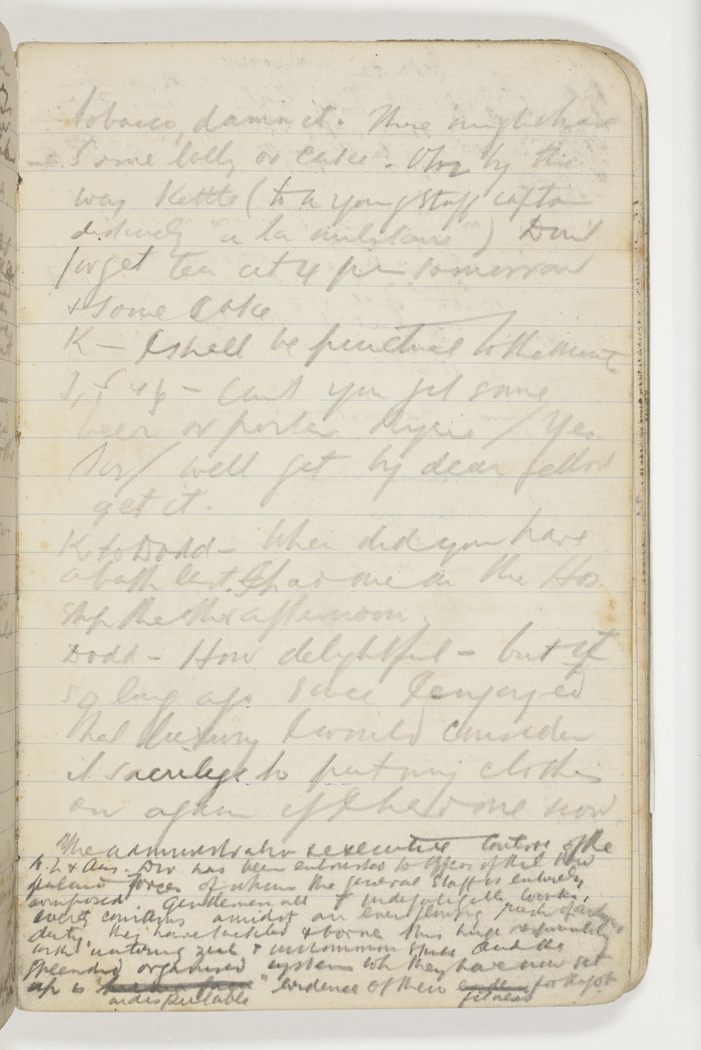 tobacco, damn it. There might have
some lolly or cake - Oh by the
way Kettle (to a young staff captain
distinctly "a la militaire") Don't
forget tea at 4 pm tomorrow
& some Cake
K - I shall be punctual to the minute
- Can't you get some
beer or porter / Yes
Sir / well get by dear fellow
get it.
K to Dodd - When did you have
a bath last. I had one on the Hos
ship this afternoon.
Dodd - How delightful - but it
so long ago since I enjoyed
that luxury I would consider
it sacrilege to put my clothes
on again if I had one now.
The administrative & executive control of the
N.Z & Aus. Div has been entrusted to officers of the New
Zealand forces of whom the General Staff is entirely
composed. Gentlemen all & indefatigable workers,
amidst an everflowing rush of arduous
duty, they have tackled & borne this huge responsibility
with untiring zeal & uncommon and the
splendid organised system wh they have now set
up is " evidence of their for the job
indisputable fitness